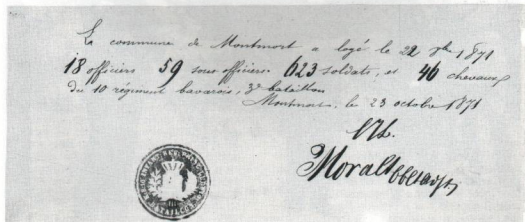 La commune de Montmort a logé le 22 8bre 1871
18 officiers 59 sous-officiers 623 soldats, et 46 chevaux
du 10 régiment bavarois, 3e bataillon
Montmort, le 23 octobre 1871
Moralt